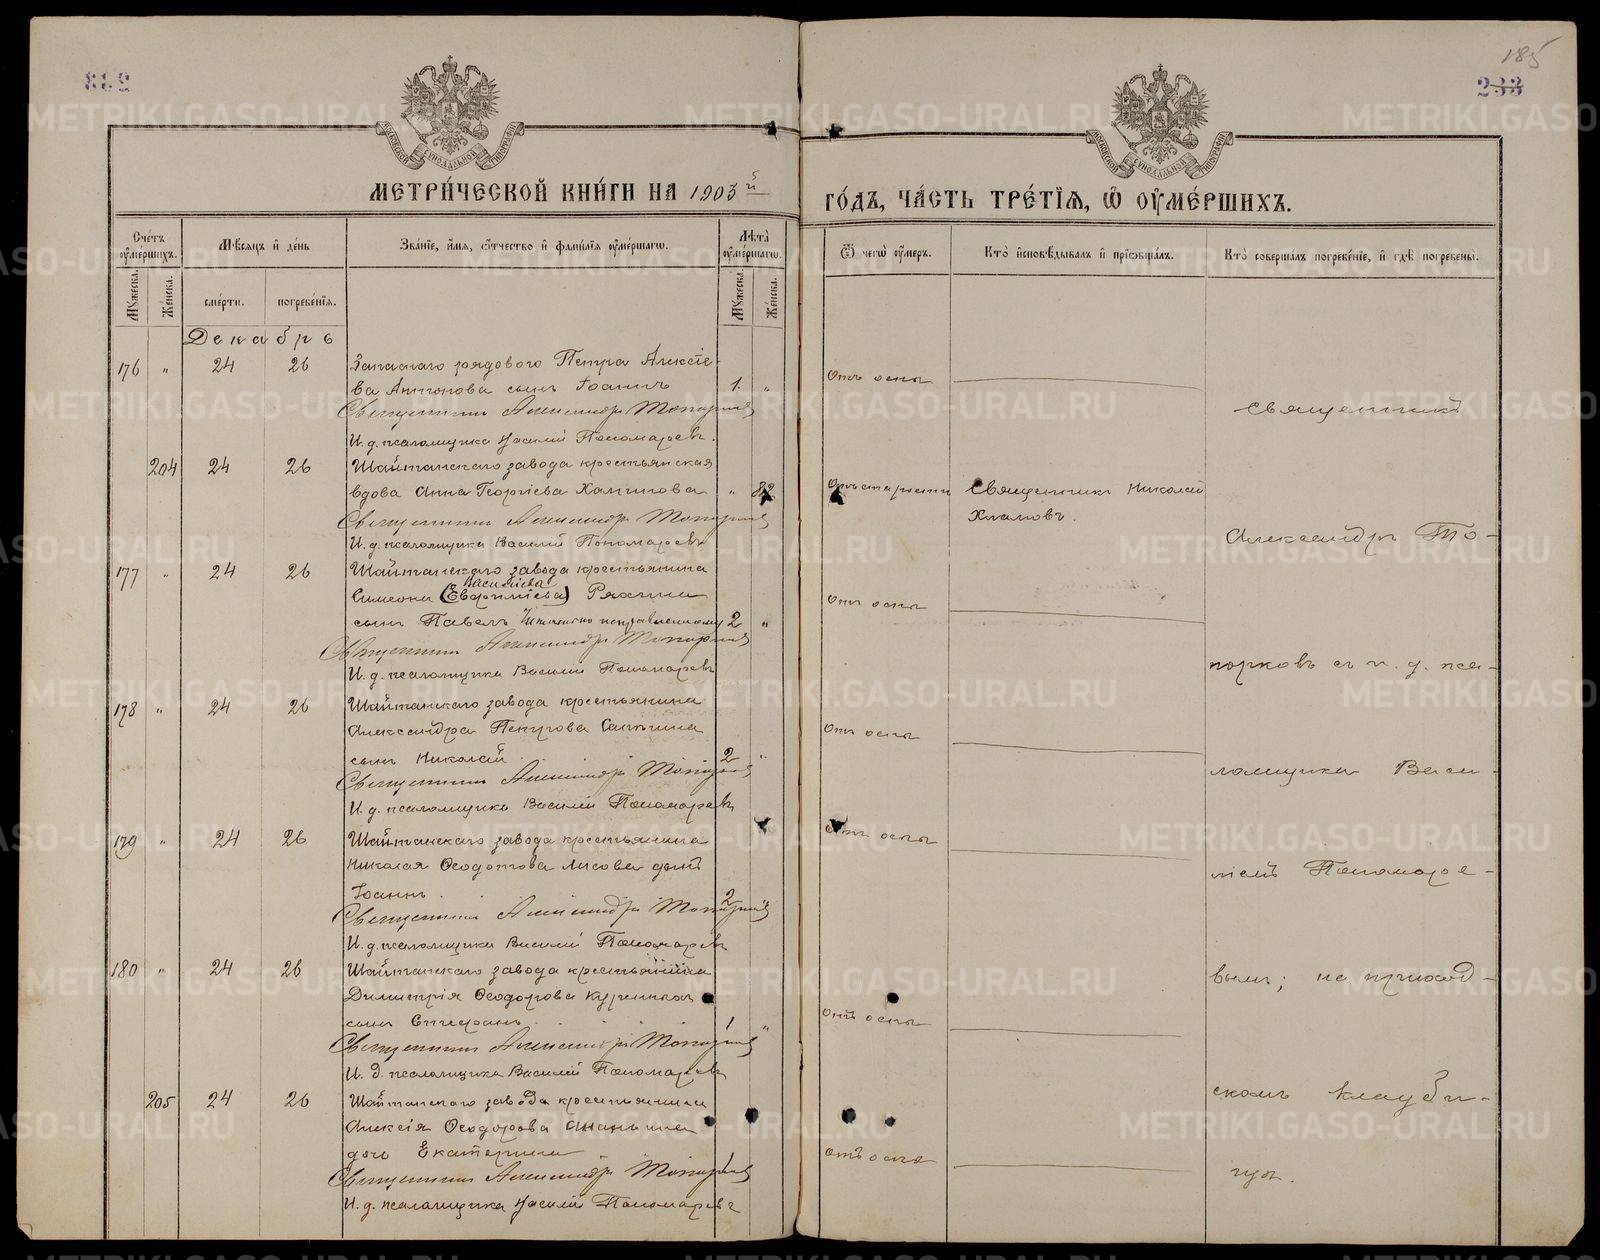 185
233
МЕТРИ́ЧЕСКОЙ КНИ́ГИ НА 1903 й
ГО́ДЪ, ЧА́СТЬ ТРЕ́ТІЯ, Ѿ ОУ҆МЕ́РШИХЪ.
Счетъ оумершихъ.
Мѣсяцъ и день
Званіе, имя, отчество и фамилія оумершагѡ.
Лѣта оумершагѡ.
Ѿ чегѡ оумеръ.
Кто исповѣдывалъ и пріобщалъ.
Кто совершалъ погребеніе, и гдѣ погребены.
Мужеска.
Женска.
смерти.
погребенія.
Мужеска.
Женска.
Декабрь
176 " 24 26 Запаснаго рядового Петра Алексѣе-
ва Антонова сынъ Іоаннъ 1. " Отъ оспы
Священникъ Александръ Топорковъ
И. д. псаломщика Василій Пономаревъ.
204 24 26 Шайтанскаго завода крестьянская
вдова Анна Георгіева " 82 Отъ старости Священникъ Николай
Священникъ Александръ Топорковъ
И. д. псаломщика Василій Пономаревъ
177 " 24 26 Шайтанскаго завода крестьянина
Васильева
Симеона (Евфиміева)
сынъ Павелъ 2 " Отъ оспы
Священникъ Александръ Топорковъ
И. д. псаломщика Василій Пономаревъ
178 " 24 26 Шайтанскаго завода крестьянина
Александра Петрова
сынъ Николай 2 " Отъ оспы
Священникъ Александръ Топорковъ
И. д. псаломщика Василій Пономаревъ
179 " 24 26 Шайтанскаго завода крестьянина
Николая Ѳеодотова Лисова дитя
Іоаннъ. 2 " Отъ оспы
Священникъ Александръ Топорковъ
И. д. псаломщика Василій Пономаревъ
180 " 24 26 Шайтанскаго завода крестьянина
Димитрія Ѳеодорова
сынъ Стефанъ 1 " Отъ оспы
Священникъ Александръ Топорковъ
И. д. псаломщика Василій Пономаревъ
205 24 26 Шайтанскаго завода крестьянина
Алексія Ѳеодорова Ананьина
дочь Екатерина 1 Отъ оспы
Священникъ Александръ Топорковъ
И. д. псаломщика Василій Пономаревъ
Священникъ
Александръ То-
порковъ съ и. д. пса-
ломщика Васи-
ліемъ Пономаре-
вымъ; на приход-
скомъ кладби-
щѣ.
METRIKI.GASO-URAL.RU